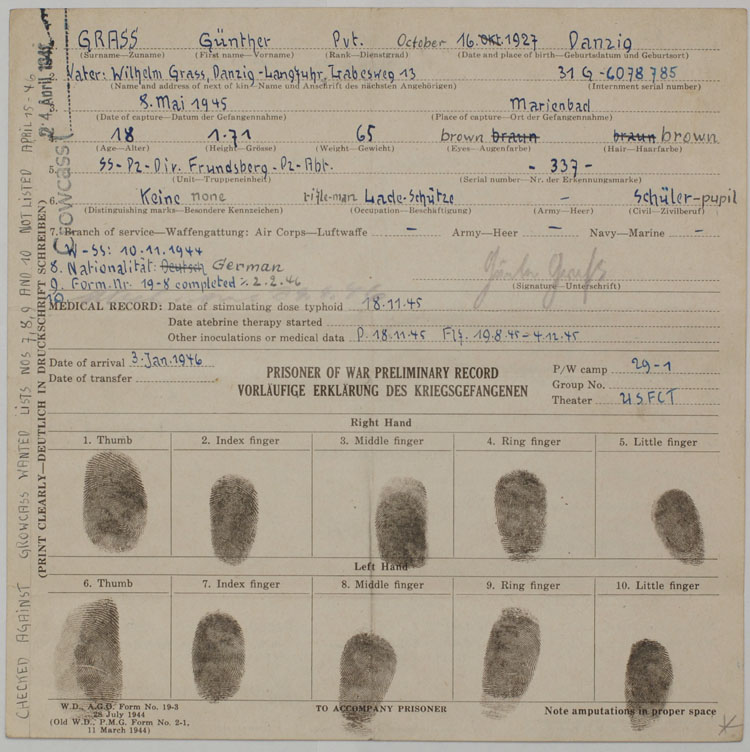 GRASS Günther Pvt. October 16. Okt. 1927 Danzig
(Surname—Zuname) (First name—Vorname) (Rank—Dienstgrad) (Date and place of birth—Geburtsdatum und Geburtsort)
Vater: Wilhelm Grass, Danzig-Langfuhr, Labesweg 13 31 G - 6078 785
(Name and address of next of kin—Name und Anschrift des nächsten Angehörigen) (Internment serial number)
8. Mai 1945 Marienbad
(Date of capture—Datum der Gefangennahme) (Place of capture—Ort der Gefangennahme)
18 1.71 65 brown braun braun brown
(Age—Alter) (Height—Grösse) (Weight—Gewicht) (Eyes—Augenfarbe) (Hair—Haarfarbe)
5. SS-Pz-Div. Frundsberg-Pz-Abt. - 337 -
(Unit—Truppeneinheit) (Serial number—Nr. der Erkennungsmarke)
6. Keine none rifle-man Lade-Schütze — Schüler-pupil
(Distinguishing marks—Besondere Kennzeichen) (Occupation—Beschäftigung) (Army—Heer) (Civil—Zivilberuf)
7. Branch of service—Waffengattung: Air Corps—Luftwaffe — Army—Heer — Navy—Marine —
W-SS: 10.11.1944
8. Nationalität: Deutsch German
9. Form. Nr. 19-8 completed 2.2.46
(Signature—Unterschrift)
10.
MEDICAL RECORD: Date of stimulating dose typhoid 18.11.45
Date atebrine therapy started
Other inoculations or medical data P. 18.11.45 Flf. 19.8.45-4.12.45
Date of arrival 3. Jan. 1946
Date of transfer
PRISONER OF WAR PRELIMINARY RECORD
VORLÄUFIGE ERKLÄRUNG DES KRIEGSGEFANGENEN
P/W camp 29-1
Group No.
Theater USFET
Right Hand
1. Thumb 2. Index finger 3. Middle finger 4. Ring finger 5. Little finger
Left Hand
6. Thumb 7. Index finger 8. Middle finger 9. Ring finger 10. Little finger
W.D., A.G.O. Form No. 19-3
28 July 1944
(Old W.D., P.M.G. Form No. 2-1,
11 March 1944)
TO ACCOMPANY PRISONER
Note amputations in proper space
(PRINT CLEARLY—DEUTLICH IN DRUCKSCHRIFT SCHREIBEN)
CHECKED AGAINST CROWCASS WANTED LISTS NOS 7,8,9 AND 10 NOT LISTED APRIL 15-46
Crowcass
24. April 1946